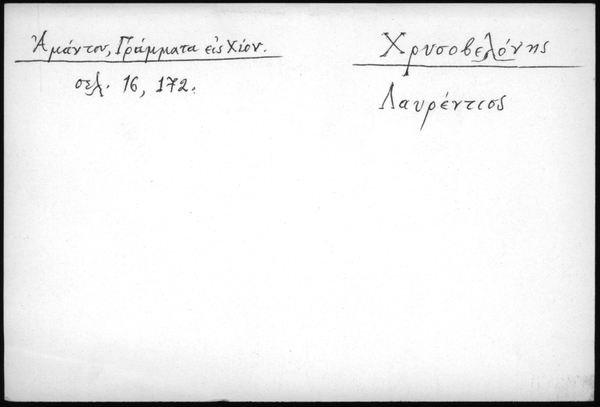 Ἀμάντου, Γράμματα εἰς Χίον.
σελ. 16, 172.
Χρυσοβελόνης
Λαυρέντιος